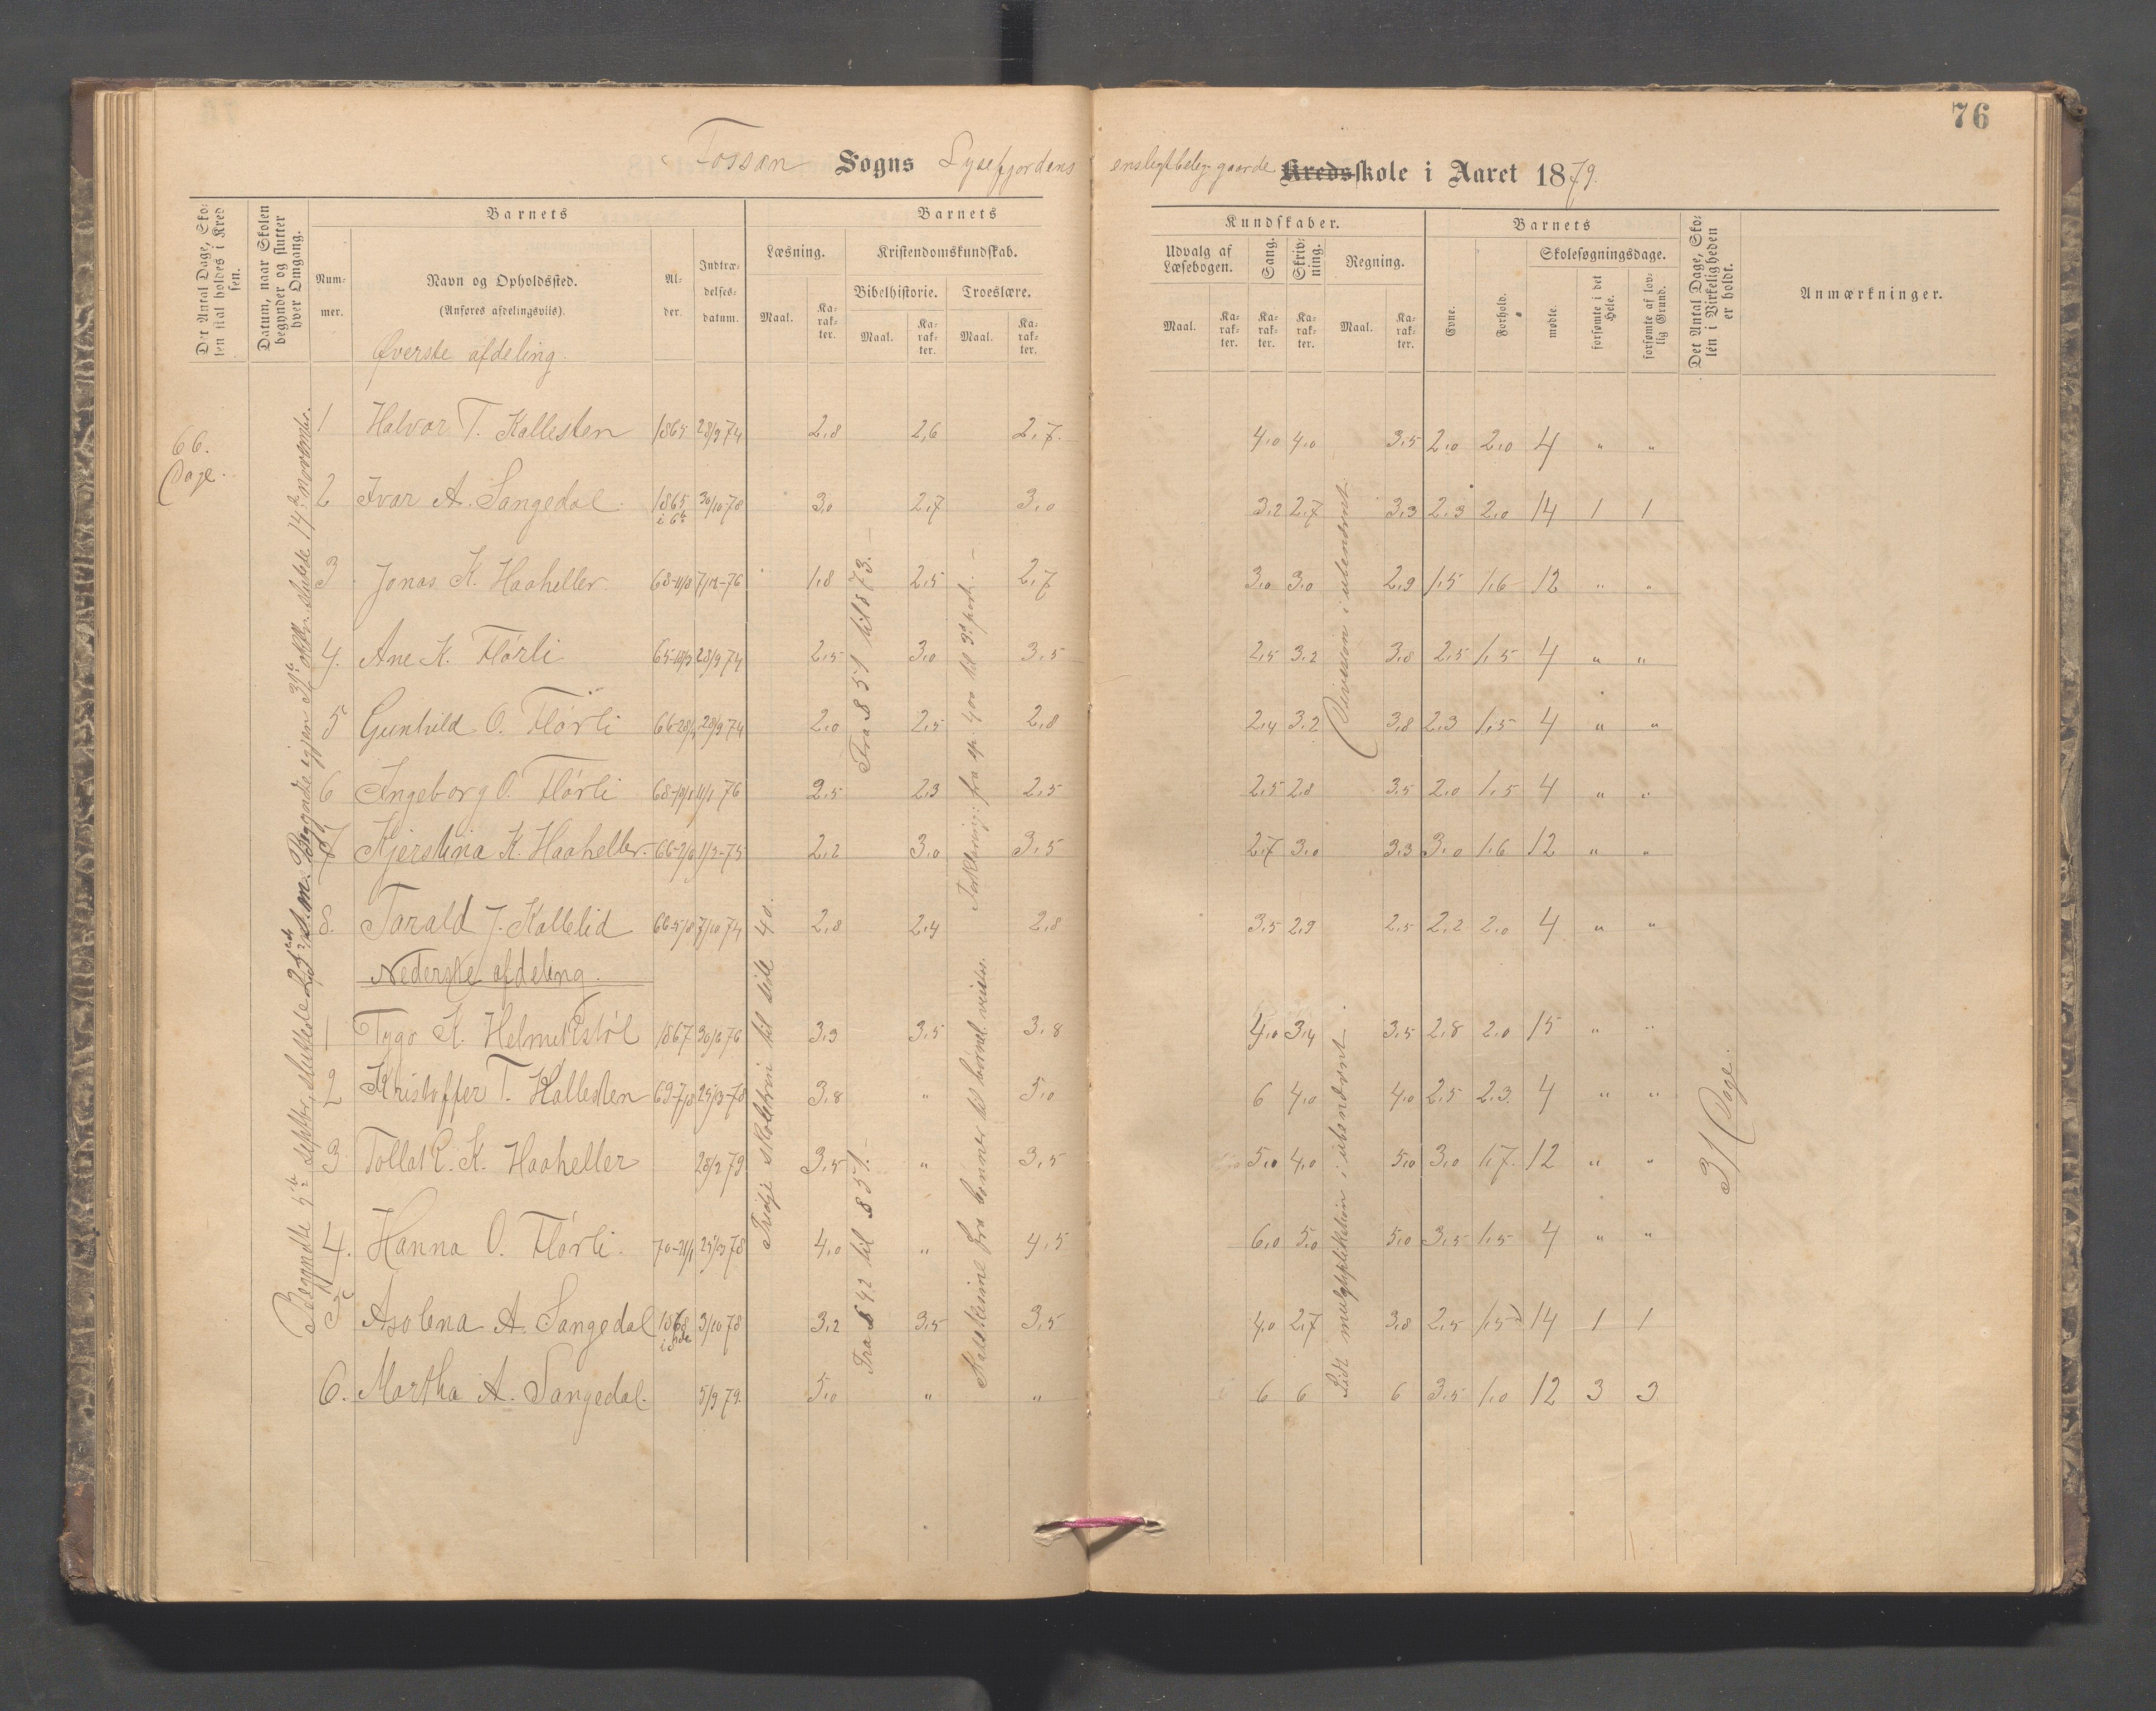 76
Fossan Sogns Lysefjordens ensligtbelig. gaarde Kredsskole i Aaret 1879.
Det Antal Dage, Skolen skal holdes i Kredsen.
Datum, naar Skolen begynder og slutter hver Omgang.
Barnets
Nummer.
Navn og Opholdssted.
(Anføres afdelingsviis).
Alder.
Indtrædelsesdatum.
Barnets
Læsning.
Maal.
Karakter.
Kristendomskundskab.
Bibelhistorie.
Maal.
Karakter.
Troeslære.
Maal.
Karakter.
Kundskaber.
Udvalg af Læsebogen.
Maal.
Karakter.
Sang.
Karakter.
Skrivning.
Karakter.
Regning.
Maal.
Karakter.
Barnets
Evne.
Forhold.
Skolesøgningsdage.
mødte.
forsømte i det Hele.
forsømte af lovlig Grund.
Det Antal Dage, Skolen i Virkeligheden er holdt.
Anmærkninger.
Øverste afdeling.
66. Dage.
1 Halvor T. Kallesten 1865 28/9 74 2,8 2,6 2,7. 4,0 4,0 3,5 2,0 2,0 4 " "
2 Ivar A. Sangedal. 1865 30/10 78 3,0 2,7 3,0 3,2 2,7 3,3 2,3 2,0 14 1 1
3 Jonas K. Haaheller. 68-11/8 7/12-76 1,8 2,5 2,7 3,0 3,0 2,9 1,5 1,6 12 " "
4. Ane K. Flørli 28/9 74 2,5 3,0 3,5 2,5 3,2 3,8 2,5 1,5 4 " "
5 Gunhild O. Flørli 28/9 74 2,0 2,5 2,8 2,4 3,2 3,8 2,3 1,5 4 " "
6 Ingeborg O. Flørli 11/1 76 2,5 2,3 2,5 2,5 2,8 3,5 2,0 1,5 4 " "
7 Kjerstina K. Haaheller. 2,2 3,0 3,5 2,7 3,0 3,3 3,0 1,6 12 " "
8. Tarald J. Kallelid 66-5/8 7/10 74 2,8 2,4 2,8 3,5 2,9 2,5 2,2 2,0 4 " "
Nederste afdeling.
1 Tygo K. Helmikstøl 1867 3,3 3,5 3,8 4,0 3,4 3,5 2,8 2,0 15 " "
2 Kristoffer T. Kallesten 69-7/8 25/3-78 3,8 " 5,0 6 4,0 4,0 2,5 2,3. 4 " "
3 Tollak K. Haaheller 28/2 79 3,5 " 3,5 5,0 4,0 5,0 3,0 1,7. 12 " "
4. Hanna O. Flørli. 70-21/1 25/3 78 4,0 " 4,5 6,0 5,0 5,0 3,5 1,5 4 " "
5 Asolena A. Sangedal 1868 3/10 78 3,2 3,5 3,5 4,0 2,7 3,8 2,5 1,5 14 1 1
6. Martha A. Sangedal. 5/9 79. 5,0 " " 6 6 6 3,5 1,0 12 3 3
Begyndte 5te septbr, sluttede
Begyndte igjen 31te oktbr. sluttede 14de novembr.
Tredje skoletrin til side 40.
Fra § 51 til § 73.
Fra § 42 til § 51.
Forklaring: fra sp. 400 til 3d part.
Katekisme fra
Division i ubenævnt.
Lidt multiplikation i ubenævnt.
31 Dage.